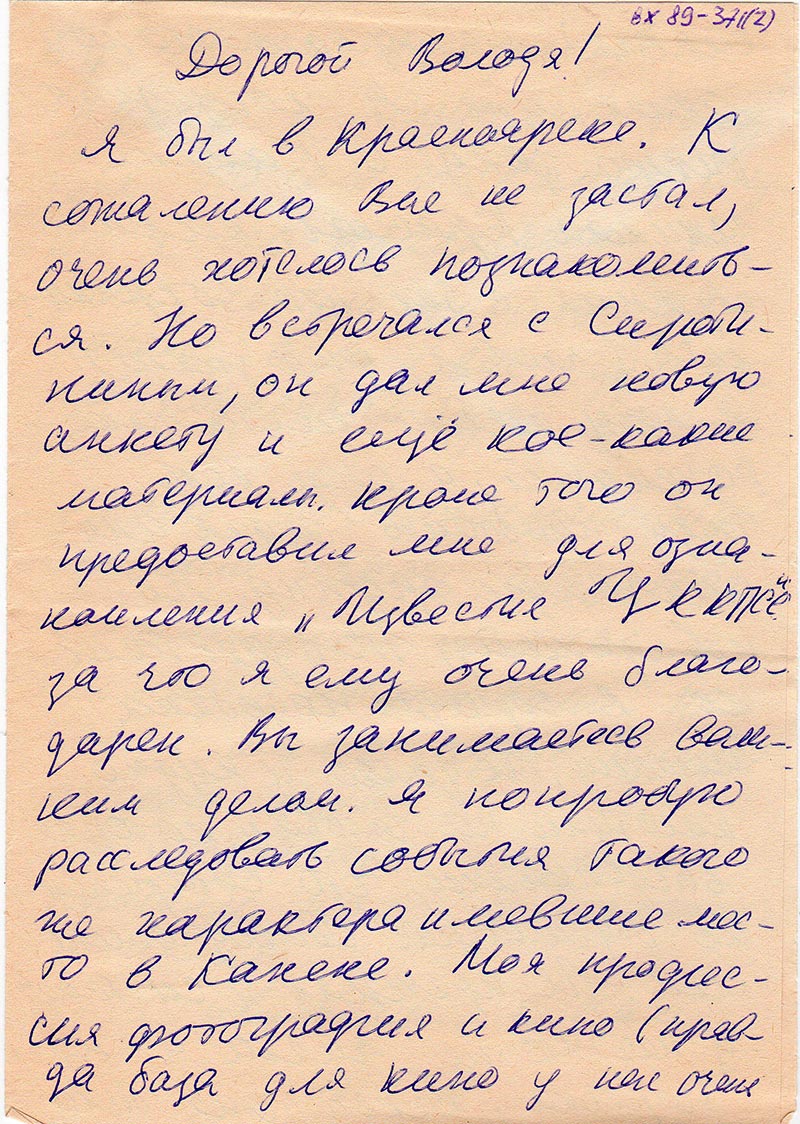 вх 89-371(2)
Дорогой Володя!
Я был в Красноярске. К
сожалению Вас не застал,
очень хотелось познакомить-
ся. Но встречался с Сироти-
ниным, он дал мне новую
анкету и ещё кое-какие
материалы. Кроме того он
предоставил мне для озна-
комления „Известия ЦК КПСС"
за что я ему очень благо-
дарен. Вы занимаетесь важ-
ным делом. Я попробую
расследовать события такого
же характера имевшие мес-
то в Канске. Моя профес-
сия фотография и кино (прав-
да база для кино у нас очень